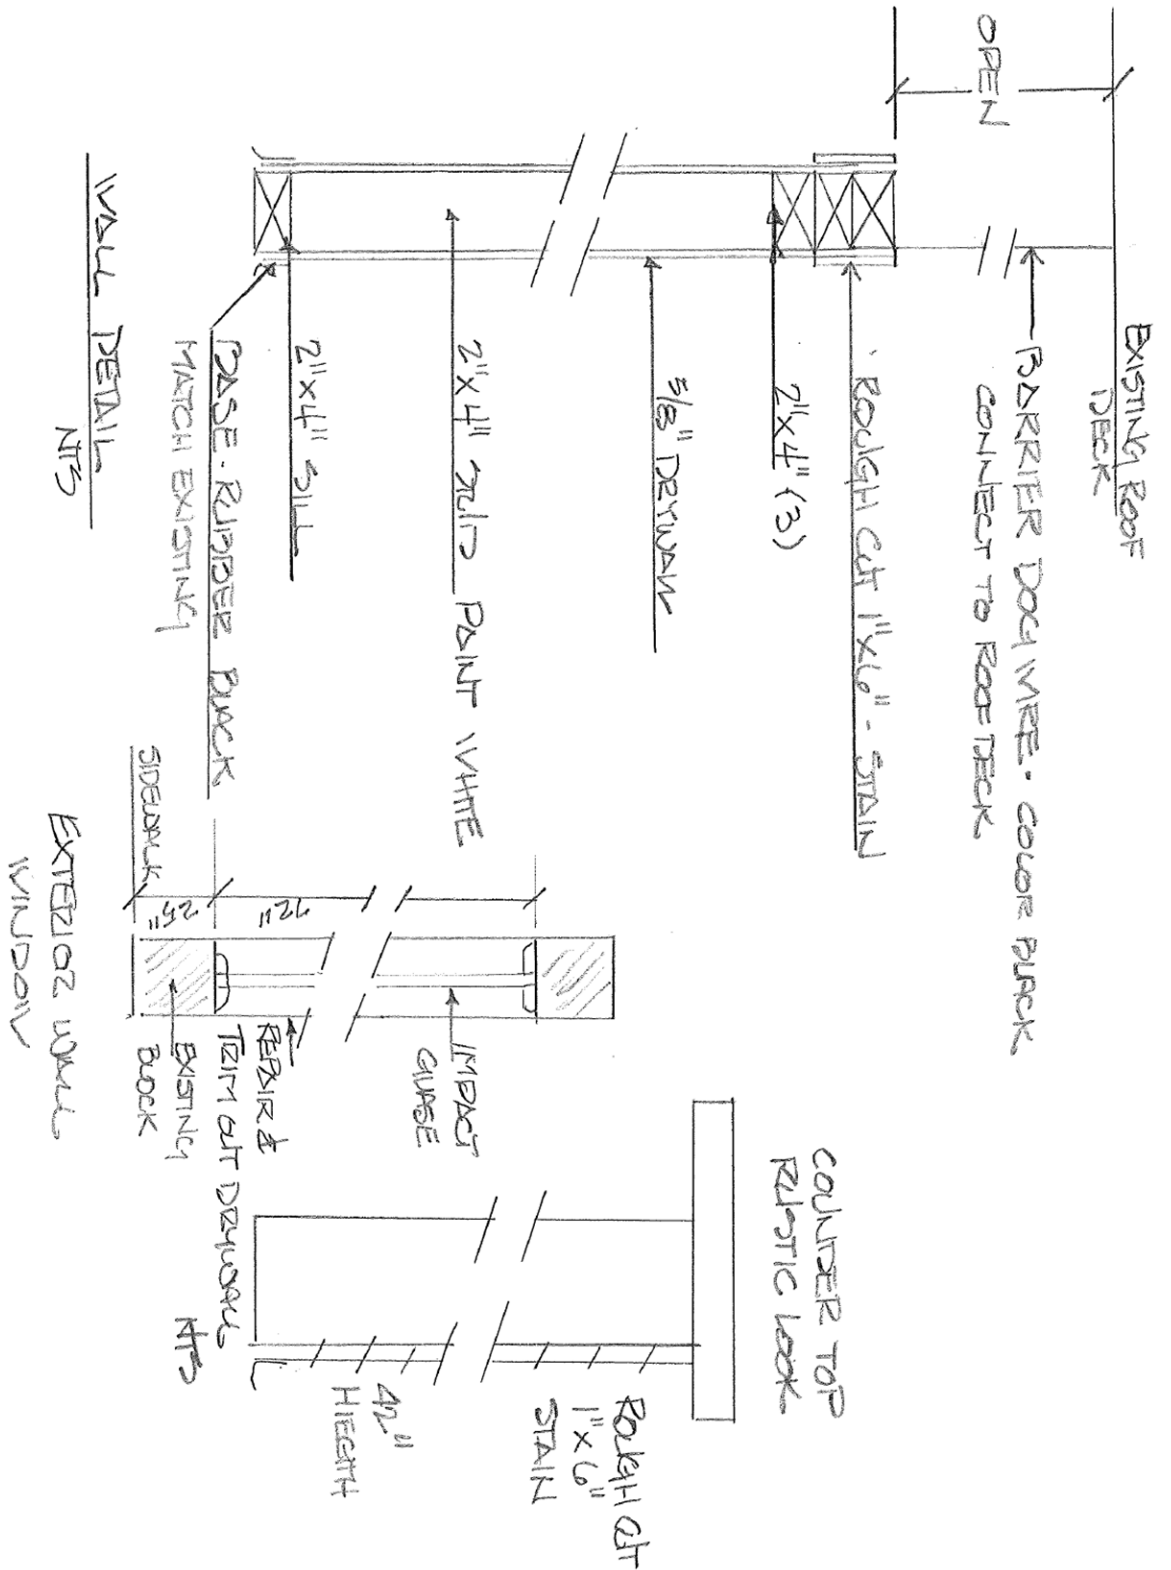 OPEN
EXISTING ROOF
DECK
BARRIER DOG WIRE • COLOR BLACK
CONNECT TO ROOF DECK
ROUGH CUT 1"X6" - STAIN
2"X4" (3)
5/8" DRYWALL
2"X4" STUD PAINT WHITE
2"X4" SILL
BASE • RUBBER BLACK
MATCH EXISTING
WALL DETAIL
NTS
IMPACT
GLASE
72"
25"
SIDEWALK
REPAIR &
TRIM OUT DRYWALL
EXISTING
BLOCK
EXTERIOR WALL
WINDOW
COUNDER TOP
RUSTIC LOOK
ROUGH CUT
1"X6"
STAIN
42"
HIEGTH
NTS